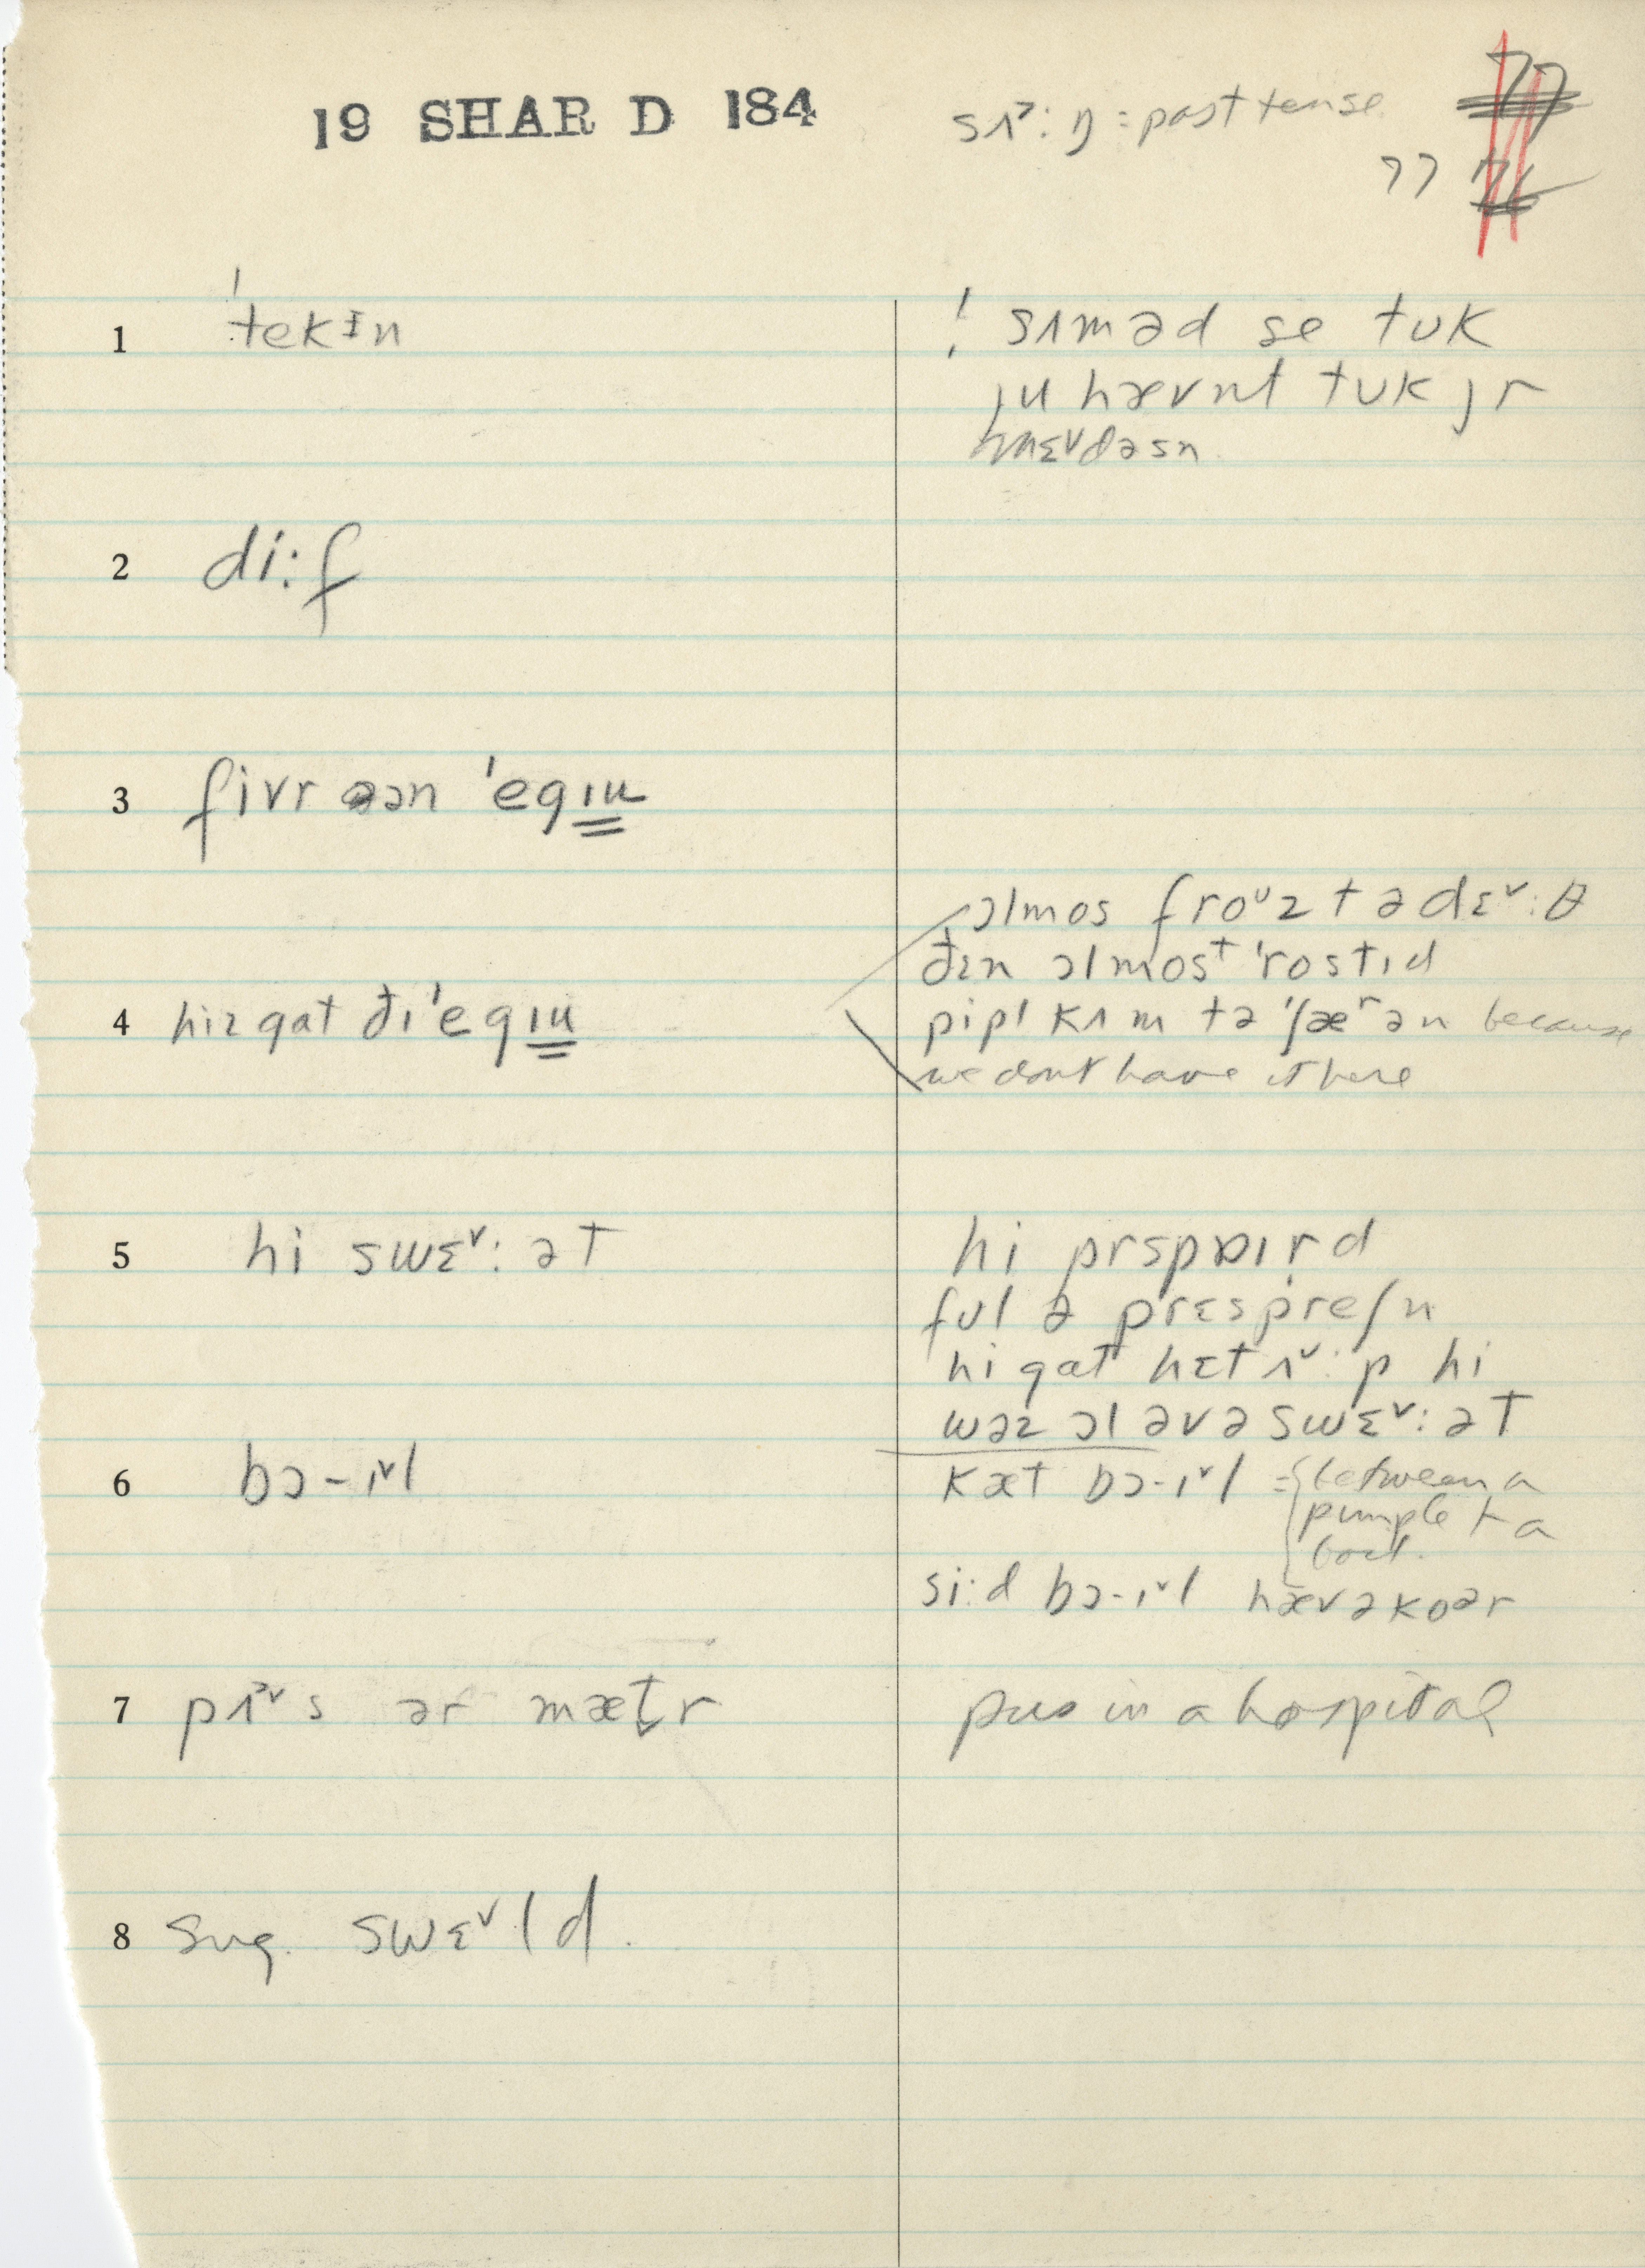 19 SHAR D 184
sʌ˃:ŋ = past tense
77
1 ˈtekɪn
! sʌməd se tuk
ju hævnt tuk jr
2 di:f
3 fivr ən ˈegɪu
4 hiz gat ði ˈegɪu
ɔlmos froᵘzt ə dɛ˅:θ
ðɛn ɔlmosᵗ ˈrostɪd
pipl kʌm tə ˈʃæʳən because
we dont have it here
5 hi swɛ˅:ət
hi prspɒɪrd
ful ə prɛspreʃn
hi gat hɛt ʌ˅:p hi
wəz ɔl əv ə swɛ˅:ət
6 bɔ-ɪ˅l
kæt bɔ-ɪ˅l = between a
pimple + a
boil.
si:d bɔ-ɪ˅l hæv ə koər
7 pʌ˃˅s ər mæt̬r
pus in a hospital
8 sug. swɛ˅ld.